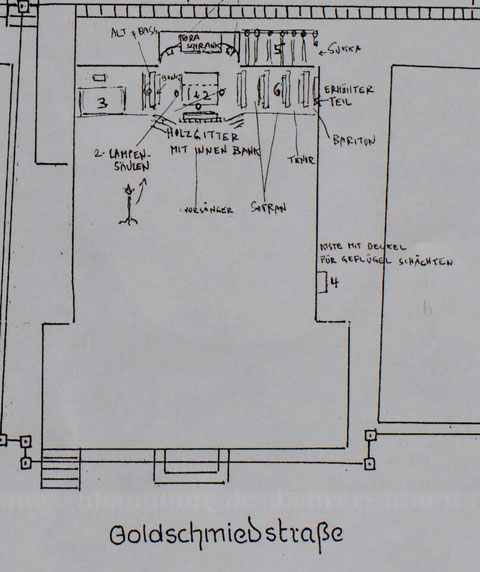 ALT & BASS
TORA
SCHRANK
5
SUKKA
BANK
3
1 & 2
6
ERHÖHTER
TEIL
BARITON
HOLZGITTER
MIT INNEN BANK
2 LAMPEN-
SÄULEN
TENOR
VORSÄNGER
SOPRAN
KISTE MIT DECKEL
FÜR GEFLÜGEL SCHÄCHTEN
4
Goldschmiedstraße